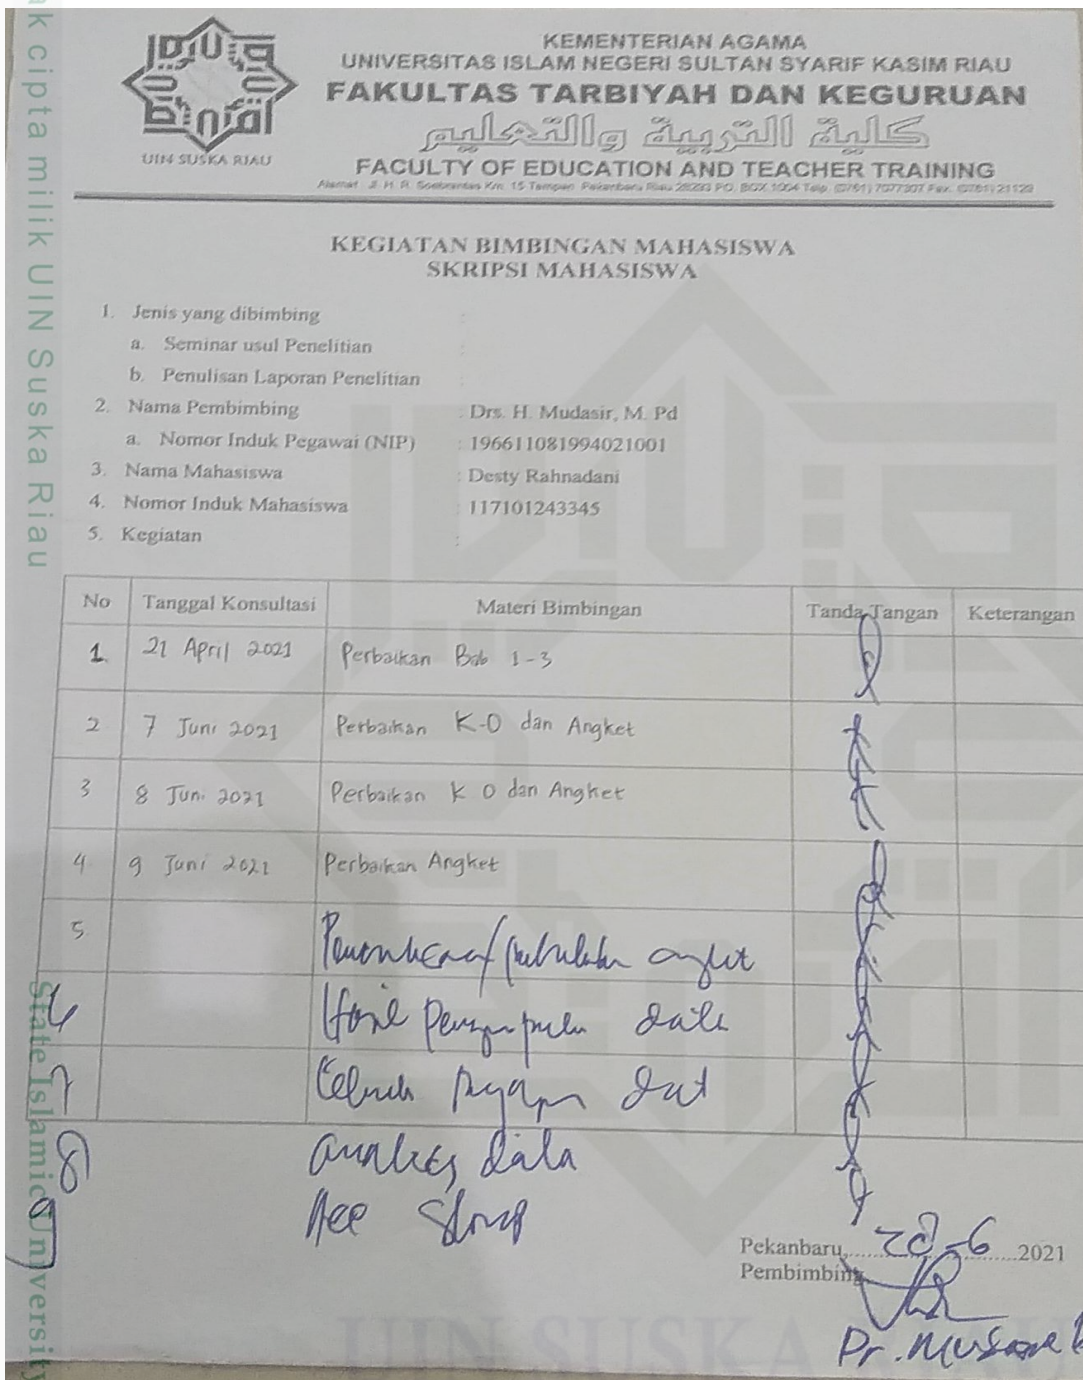 k cipta milik UIN Suska Riau
State Islamic University
UIN SUSKA RIAU
KEMENTERIAN AGAMA
UNIVERSITAS ISLAM NEGERI SULTAN SYARIF KASIM RIAU
FAKULTAS TARBIYAH DAN KEGURUAN
كلية التربية والتعليم
FACULTY OF EDUCATION AND TEACHER TRAINING
Alamat : Jl. H. R. Soebrantas Km. 15 Tampan Pekanbaru Riau 28293 PO. BOX 1004 Telp. (0761) 7077307 Fax. (0761) 21129
KEGIATAN BIMBINGAN MAHASISWA
SKRIPSI MAHASISWA
1. Jenis yang dibimbing :
a. Seminar usul Penelitian :
b. Penulisan Laporan Penelitian :
2. Nama Pembimbing : Drs. H. Mudasir, M. Pd
a. Nomor Induk Pegawai (NIP) : 196611081994021001
3. Nama Mahasiswa : Desty Rahnadani
4. Nomor Induk Mahasiswa : 117101243345
5. Kegiatan :
No Tanggal Konsultasi Materi Bimbingan Tanda Tangan Keterangan
1. 21 April 2021 Perbaikan Bab 1-3
2 7 Juni 2021 Perbaikan K-O dan Angket
3 8 Juni 2021 Perbaikan K O dan Angket
4 9 Juni 2021 Perbaikan Angket
5
6 Hasil data
7
8 data
9 Acc
Pekanbaru, 28-6 2021
Pembimbing
UIN SUSKA RIAU